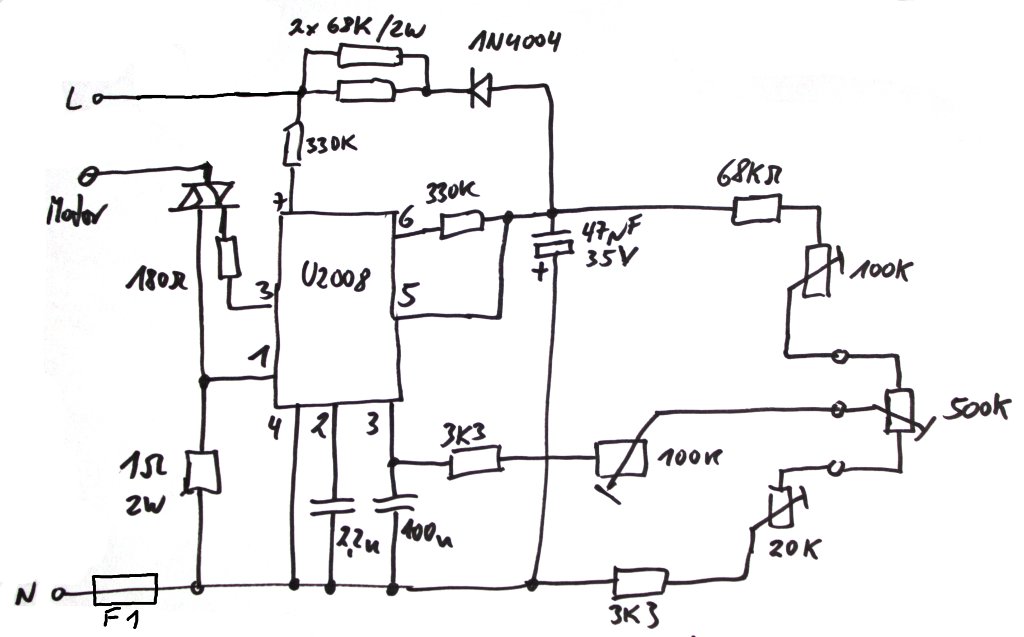 2x 68K/2W
1N4004
L
330K
Motor
7
6
330K
68KΩ
47µF
35V
+
180Ω
U2008
100K
3
5
1
500K
4
2
3
3K3
1Ω
2W
100K
2,2n
400n
20K
N
F1
3K3